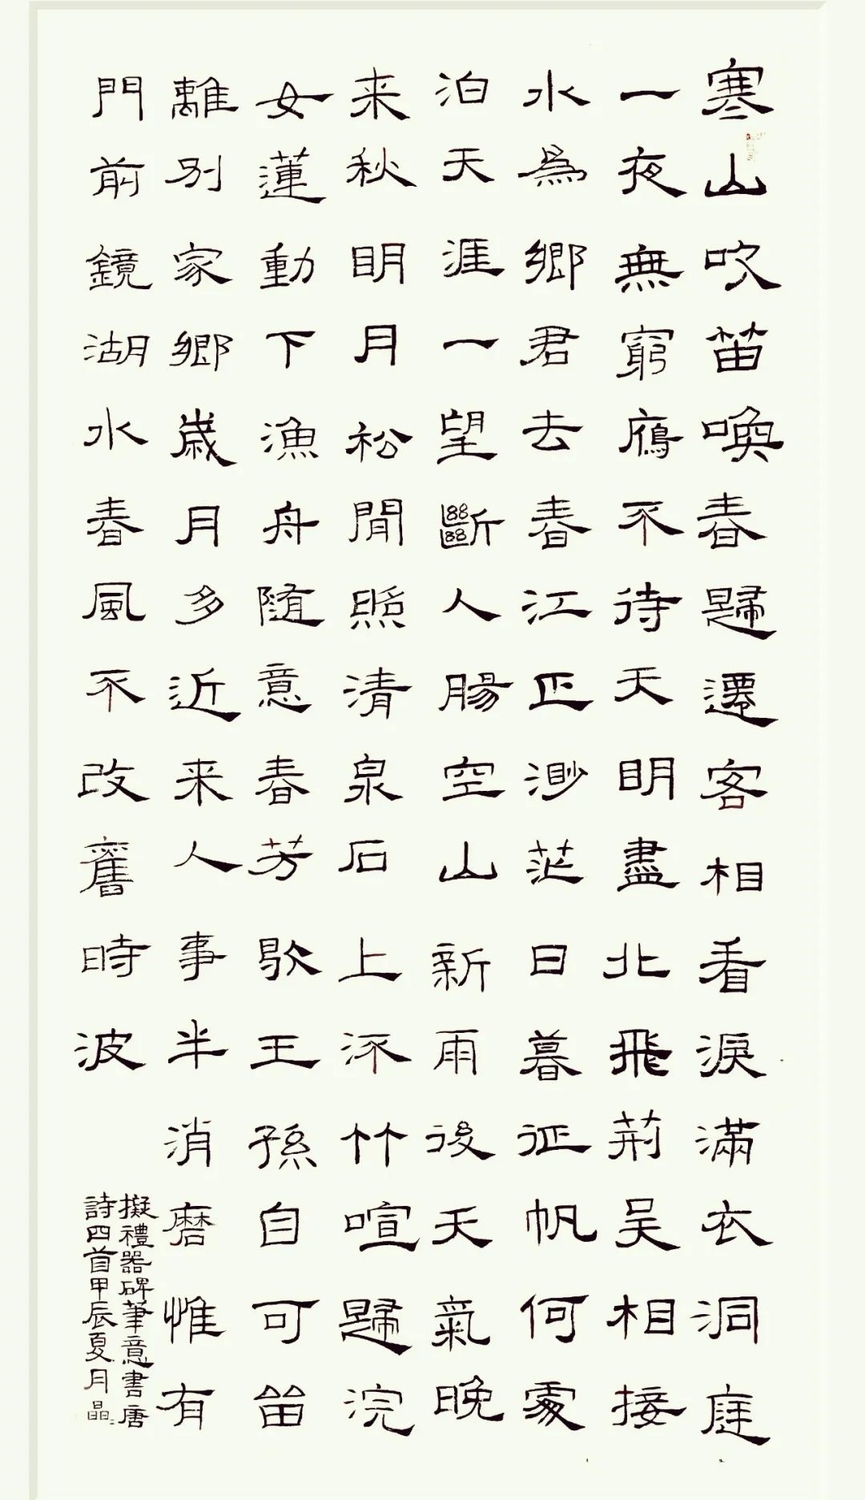 寒山吹笛喚春歸遷客相看淚滿衣洞庭
一夜無窮鴈不待天明盡北飛荊吳相接
水為鄉君去春江正渺茫日暮征帆何處
泊天涯一望斷人腸空山新雨後天氣晚
来秋明月松間照清泉石上流竹喧歸浣
女蓮動下漁舟随意春芳歇王孫自可留
離別家鄉歲月多近来人事半消磨惟有
門前鏡湖水春風不改舊時波
擬禮器碑筆意書唐
詩四首甲辰夏月晶